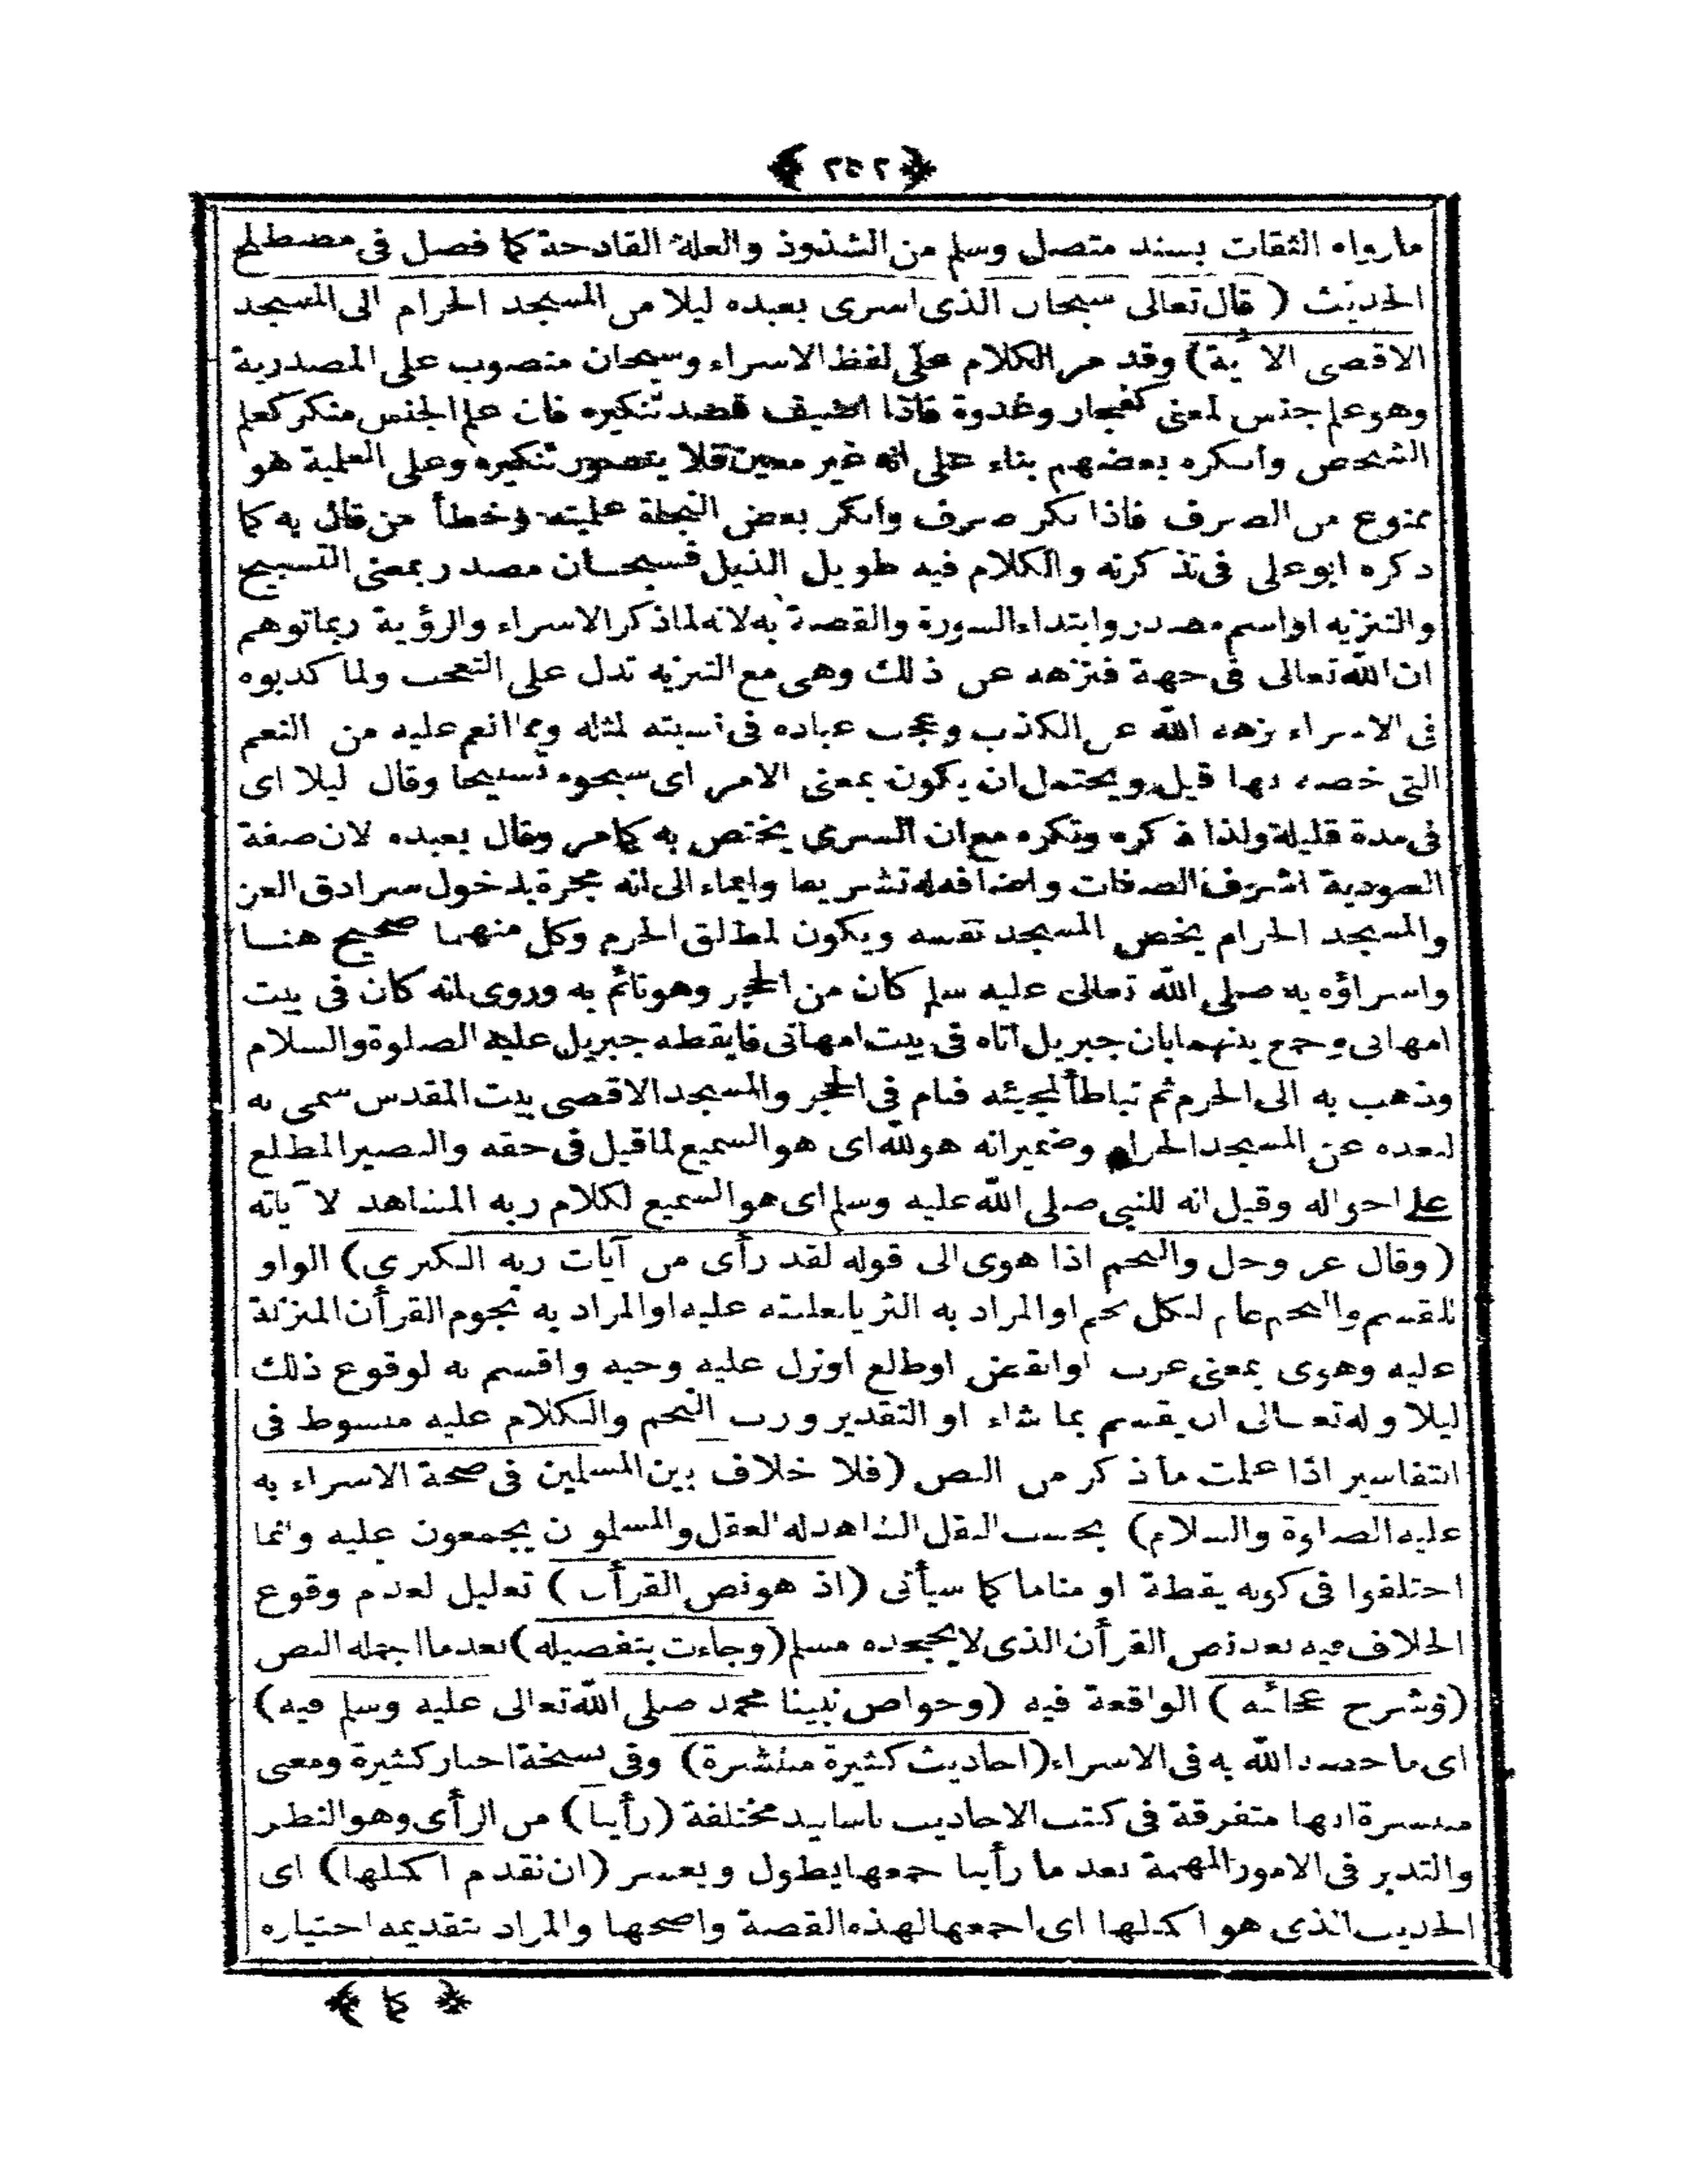 ﴿ ٢٥٢ ﴾
مارواه الثقات بسند متصل وسلم من الشذوذ والعلة القادحة كما فصل فى مصطلح
الحديث ( قال تعالى سبحان الذى اسرى بعبده ليلا من المسجد الحرام الى المسجد
الاقصى الآية) وقد مر الكلام على لفظ الاسراء وسبحان منصوب على المصدرية
وهو علم جنس لمعنى كفجار وغدوة فاذا اضيف قصد تنكيره فان علم الجنس منكر كعلم
الشخص وانكره بعضهم بناء على انه غير معين فلا يتصور تنكيره وعلى العلمية هو
ممنوع من الصرف فاذا نكر صرف وانكر بعض النحاة علميته وخطأ من قال به كما
ذكره ابو على فى تذكرته والكلام فيه طويل الذيل فسبحان مصدر بمعنى التسبيح
والتنزيه او اسم مصدر وابتداء السورة والقصة به لانه لماذكر الاسراء والرؤية ربما توهم
ان الله تعالى فى جهة فنزهه عن ذلك وهى مع التنزيه تدل على التعجب ولما كذبوه
فى الاسراء نزهه الله عن الكذب وعجب عباده فى نسبته لمثله ومما انعم عليه من النعم
التى خصه بها قيل ويحتمل ان يكون بمعنى الامر اى سبحوه تسبيحا وقال ليلا اى
فى مدة قليلة ولذا ذكره ونكره مع ان السرى يختص به كما مر وقال بعبده لان صفة
العبودية اشرف الصفات واضافه له تشريفا وايماء الى انه بدخول سرادق العز
والمسجد الحرام يخص المسجد نفسه ويكون لمطلق الحرم وكل منهما صحيح هنا
واسراؤه به صلى الله تعالى عليه سلم كان من الحجر وهو نائم به وروى انه كان فى بيت
امهانى وجمع بينهما بان جبريل اتاه فى بيت امهانى فايقظه جبريل عليه الصلوة والسلام
وذهب به الى الحرم ثم تباطأ لمجيئه فنام فى الحجر والمسجد الاقصى بيت المقدس سمى به
لبعده عن المسجد الحرام وضميرانه هو لله اى هو السميع لما قيل فى حقه والبصير المطلع
على احواله وقيل انه للنبى صلى الله عليه وسلم اى هو السميع لكلام ربه المشاهد لآياته
(وقال عز وجل والنجم اذا هوى الى قوله لقد رأى من آيات ربه الكبرى) الواو
للقسم والنجم عام لكل نجم او المراد به الثريا لغلبته عليه او المراد به نجوم القرأن المنزلة
عليه وهوى بمعنى غرب او انقض او طلع او نزل عليه وحيه واقسم به لوقوع ذلك
ليلا وله تعالى ان يقسم بما شاء او التقدير ورب النجم والكلام عليه مبسوط فى
التفاسير اذا علمت ما ذكر من النص (فلا خلاف بين المسلمين فى صحة الاسراء به
عليه الصلوة والسلام) بحسب النقل الشاهد له العقل والمسلمون يجمعون عليه وانما
اختلفوا فى كونه يقظة او مناما كما سيأتى (اذ هو نص القرأن) تعليل لعدم وقوع
الخلاف فيه بعد نص القرأن الذى لا يجحده مسلم (وجاءت بتفصيله) بعد ما اجمله النص
(وشرح عجائبه) الواقعة فيه (وخواص نبينا محمد صلى الله تعالى عليه وسلم فيه)
اى ما خصه الله به فى الاسراء (احاديث كثيرة منتشرة) وفى نسخة اخبار كثيرة ومعنى
منتشرة انها متفرقة فى كتب الاحاديث باسانيد مختلفة (رأينا) من الرأى وهو النظر
والتدبر فى الامور المهمة بعد ما رأينا جمعها يطول ويعسر (ان نقدم اكملها) اى
الحديث الذى هو اكملها اى اجمعها لهذه القصة واصحها والمراد بتقديمه اختياره
﴿ كما ﴾